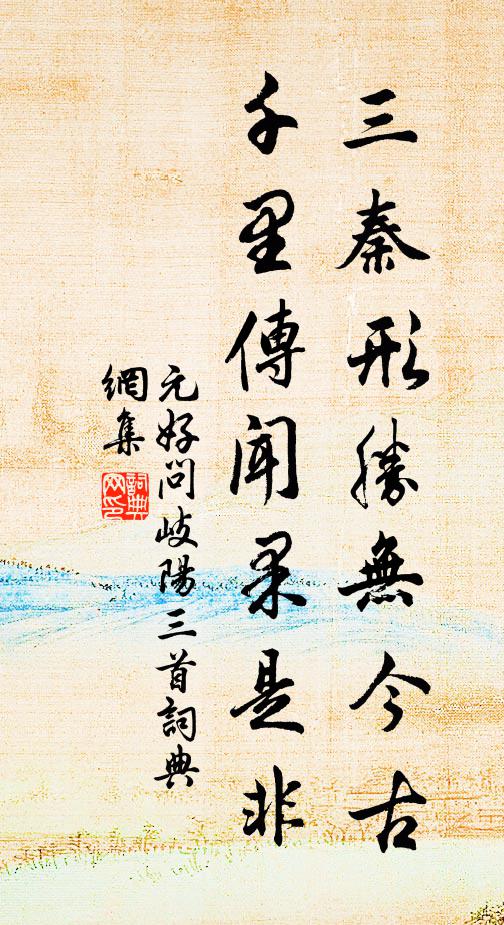 三秦形勝無今古
千里傳聞果是非
元好問岐陽三首詞典
網集
詞典
网印